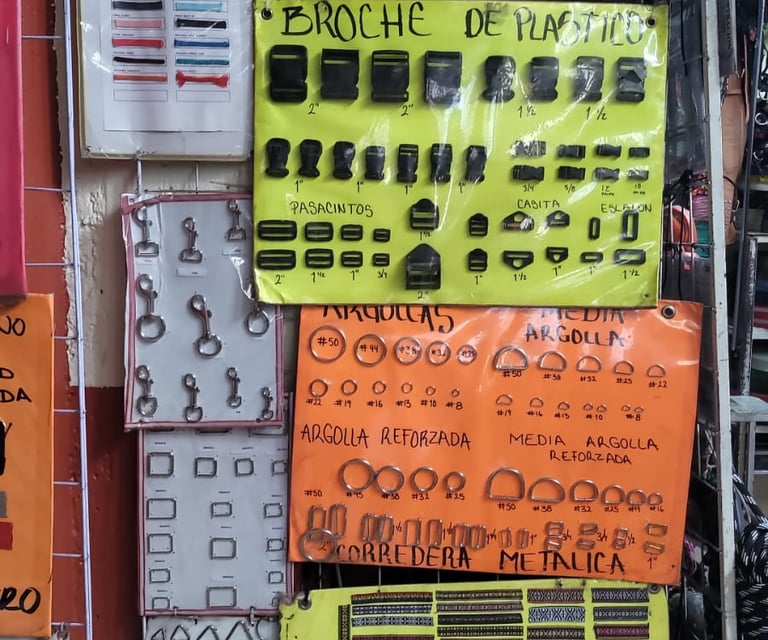 BROCHE DE PLASTICO
2" 2" 1 1/2 1 1/2
1" 1" 1" 1" 3/4 5/8 12 mm 10 mm
PASACINTOS CASITA ESLABON
1 1/2
2" 1 1/2 1" 3/4 1" 1 1/2 1" 1" 1 1/2
2"
ARGOLLAS MEDIA
ARGOLLA
#50 #44 #38 #32 #25
#50 #38 #32 #25 #22
#22 #19 #16 #13 #10 #8
#19 #16 #13 #10 #8
ARGOLLA REFORZADA MEDIA ARGOLLA
REFORZADA
#50 #45 #38 #32 #25
#50 #38 #32 #25 #19 #16
CORREDERA METALICA 1"
DA
RO